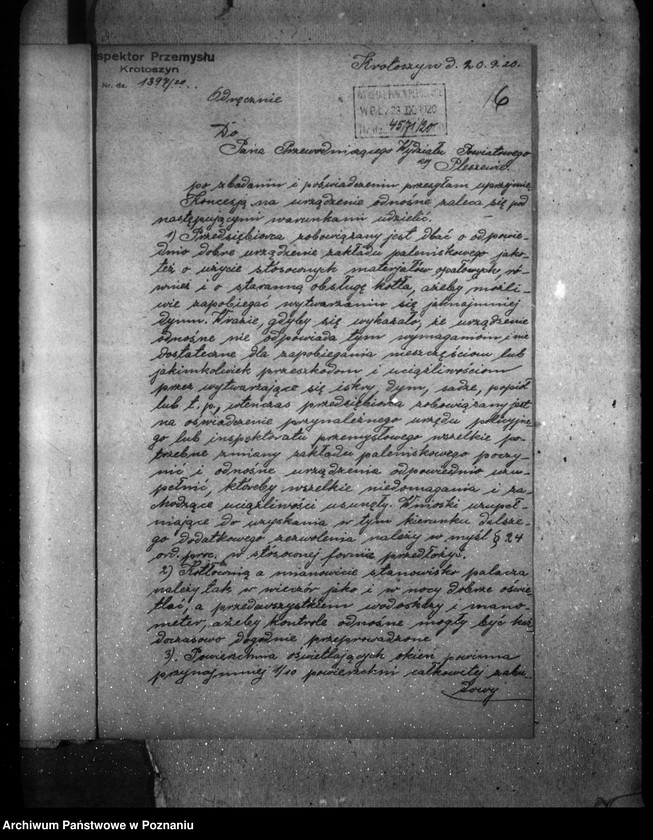 spektor Przemysłu
Krotoszyn
Nr. dz. 1397/20.
Krotoszyn d. 20.9.20.
Odręcznie
16
23 IX. 1920
4571/20
Do
Pana Przewodniczącego Wydziału Powiatowego
w Pleszewie
po zbadaniu i poświadczeniu przesyłam uprzejmie.
Koncesją na urządzenie odnośne zaleca się pod
następującymi warunkami udzielić.
1) Przedsiębiorca zobowiązany jest dbać o odpowie-
dnio dobre urządzenie zakładu paleniskowego jako
też o użycie stósownych materjałów opałowych, ró-
wnież i o staranną obsługę kotła, ażeby możli-
wie zapobiegać wytwarzaniu się jaknajmniej
dymu. W razie, gdyby się wykazało, że urządzenie
odnośne nie odpowiada tym wymaganiom i nie
dostateczne dla zapobiegania nieszczęściom lub
jakimkolwiek przeszkodom i uciążliwościom
przez wytwarzające się iskry, dym, sadze, popiół
lub t. p., wtenczas przedsiębiorca zobowiązany jest
na oświadczenie przynależnego urzędu policyjne-
go lub inspektoratu przemysłowego wszelkie po-
trzebne zmiany zakładu paleniskowego poczy-
nić i odnośne urządzenia odpowiednio uzu-
pełnić, któreby wszelkie niedomagania i za-
chodzące uciążliwości usunęły. Wnioski uzupeł-
niające do uzyskania w tym kierunku dalsze-
go dodatkowego zezwolenia należy w myśl § 24
ord. proc. w stósownej formie przedłożyć.
2) Kotłownią a mianowicie stanowisko palacza
należy tak w wieczór jako i w nocy dobrze oświe-
tlać, a przedewszystkiem wodoskazy i mano-
meter, ażeby kontrole odnośne mogły być każ
doczasowo dogodnie przeprowadzone.
3). Powierzchnia oświetlających okien powinna
przynajmniej 1/10 powierzchni całkowitej zabu-
dowy
Archiwum Państwowe w Poznaniu